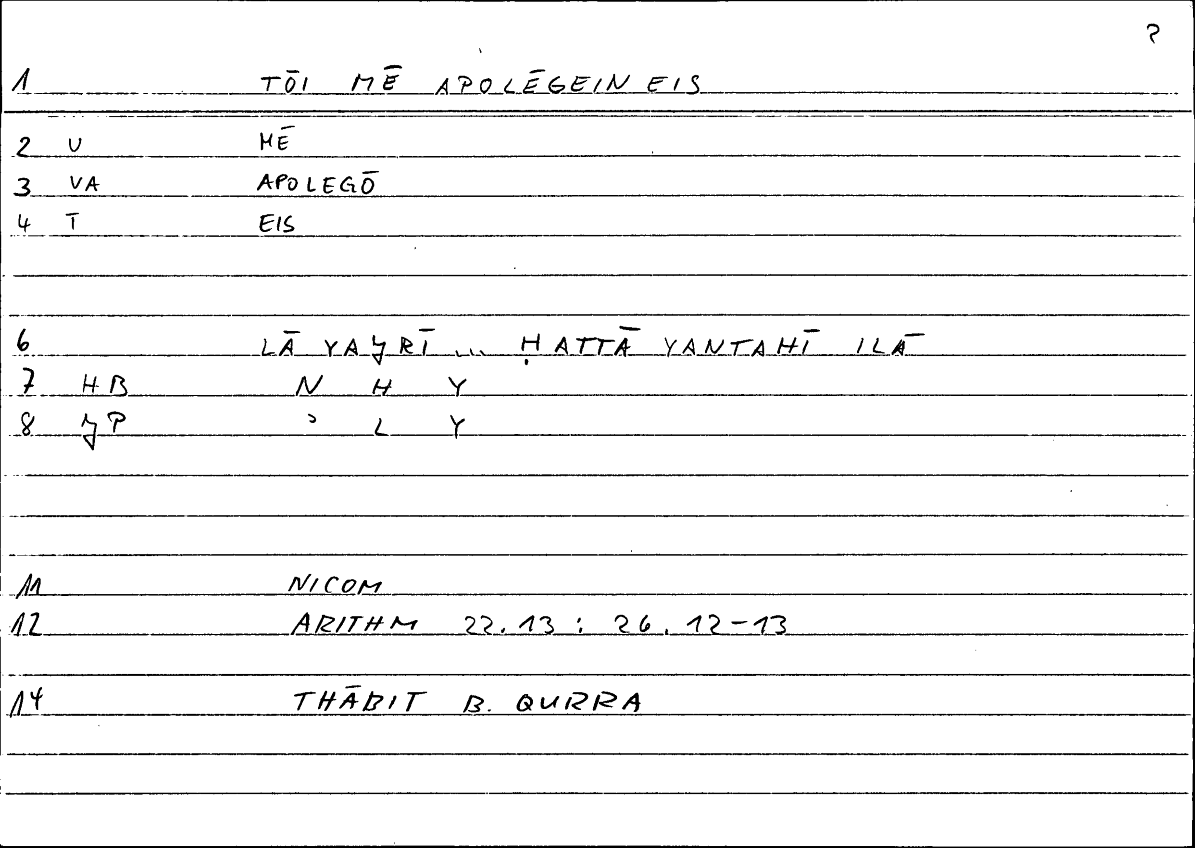 ?
1 TŌI MĒ APOLĒGEIN EIS
2 U MĒ
3 VA APOLEGŌ
4 T EIS
6 LĀ YAJRĪ ... ḤATTĀ YANTAHĪ ILĀ
7 HB N H Y
8 JP ʾ L Y
11 NICOM
12 ARITHM 22.13 : 26.12-13
14 THĀBIT B. QURRA